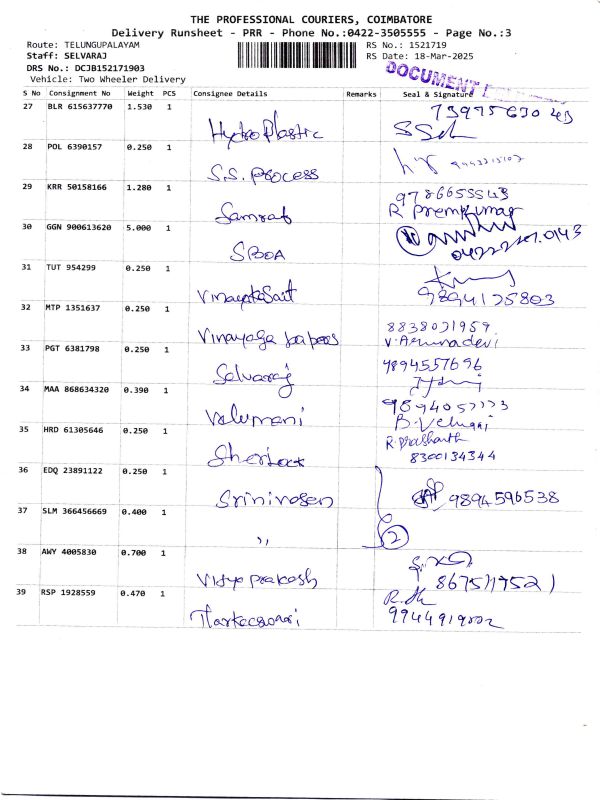 THE PROFESSIONAL COURIERS, COIMBATORE
Delivery Runsheet - PRR - Phone No.:0422-3505555 - Page No.:3
Route: TELUNGUPALAYAM RS No.: 1521719
Staff: SELVARAJ RS Date: 18-Mar-2025
DRS No.: DCJB152171903
DOCUMENT
Vehicle: Two Wheeler Delivery
S No Consignment No Weight PCS Consignee Details Remarks Seal & Signature
27 BLR 615637770 1.530 1
Hydro Plastic
28 POL 6390157 0.250 1
S.S. Process
29 KRR 50158166 1.280 1 9786655543
Samrat R Premkumar
30 GGN 900613620 5.000 1
SBOA
31 TUT 954299 0.250 1
Vinayaka Sait 9894125803
32 MTP 1351637 0.250 1 8838021959
Vinayaga papers V. Arunadevi
33 PGT 6381798 0.250 1 9894557696
Selvaraj
34 MAA 868634320 0.390 1
Valumani
35 HRD 61305646 0.250 1 R. Prashanth
Sherlock 8300134344
36 EDQ 23891122 0.250 1
Srinivasen 9894596538
37 SLM 366456669 0.400 1
,, 2
38 AWY 4005830 0.700 1
Vidya prakash
39 RSP 1928559 0.470 1